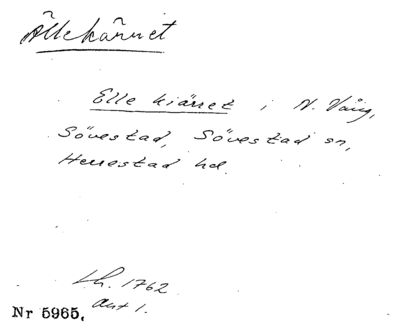 Ällekärret
Elle kiärret i N. Vång,
Sövestad, Sövestad sn,
Herrestad hd.
Lh. 1762
akt 1.
Nr 5965.